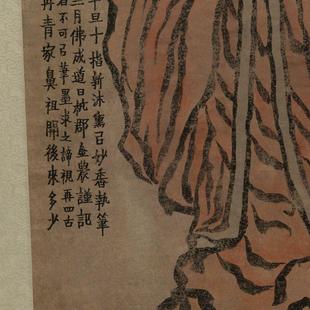 旦十指新沐熏㠯妙香執筆
二月佛成道日杭郡金農謹記
不可㠯筆墨求之諦視再四古
丹青家鼻祖開後來多少